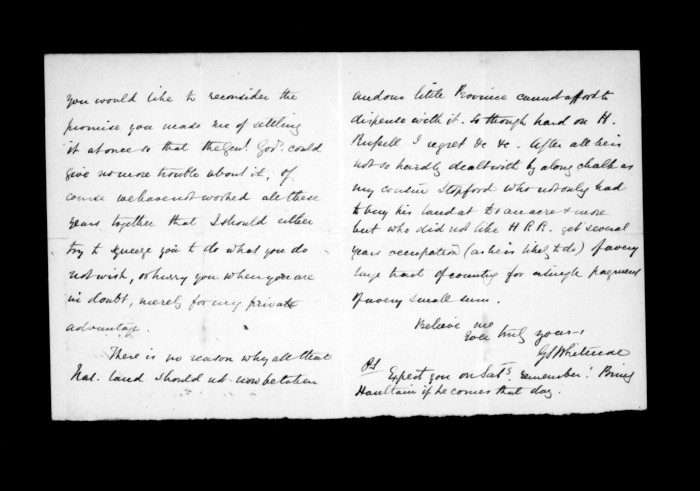 you would like to reconsider the
promise you made me of settling
it at once so that the Genl. Govt. could
give no more trouble about it, of
course we have not worked all these
years together that I should either
try to squeeze you to do what you do
not wish, or hurry you when you are
in doubt, merely for my private
advantage.
There is no reason why all that
Nat. land should not now be taken
and our little Province cannot afford to
dispense with it. So though hard on H.
Russell I regret &c &c. After all he is
not so hardly dealt with by a long chalk as
my cousin Stopford who not only had
to buy his land at an acre & more
but who did not like H R R. get several
years occupation (as he is likely to do) of a very
large tract of country for a single payment
of a very small sum.
Believe me
truly yours
G S Whitmore
PS
Expect you on Sat. remember! Bring
Haultain if he comes that day.